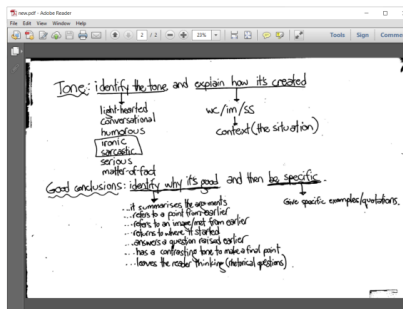 new.pdf - Adobe Reader
File Edit View Window Help
2 / 2
23%
Tools Sign Comment
Tone: identify the tone and explain how it's created
light-hearted
conversational
humorous
ironic
sarcastic
serious
matter-of-fact
wc/im/ss
context (the situation)
Good conclusions: identify why it's good and then be specific.
...it summarises the arguments
...refers to a point from earlier
...refers to an image/met from earlier
...returns to where it started
...answers a question raised earlier
...has a contrasting tone to make a final point
...leaves the reader thinking (rhetorical questions)
Give specific examples/quotations.